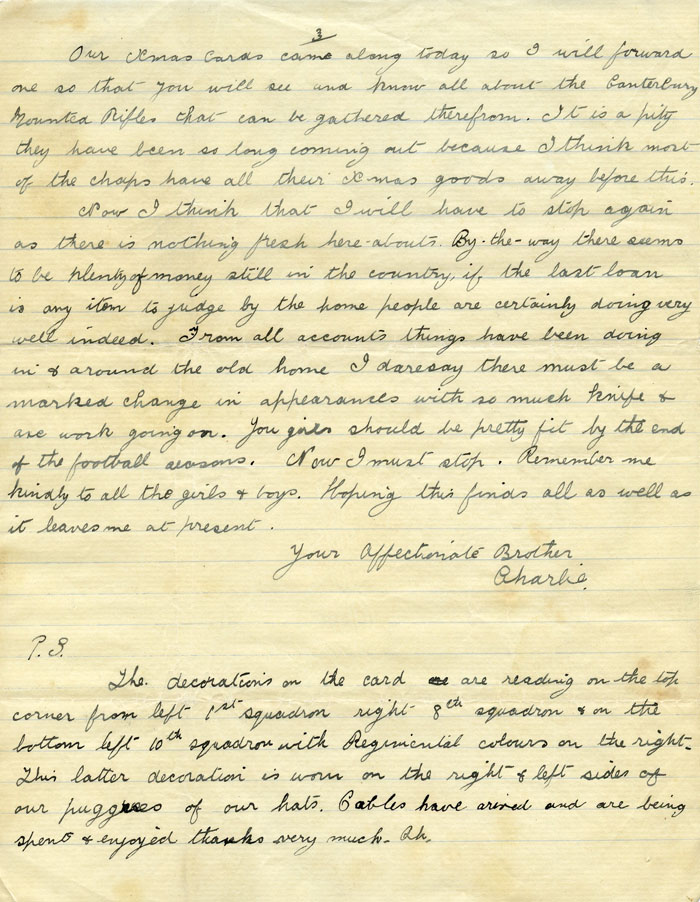 3
Our Xmas Cards came along today so I will forward
one so that you will see and know all about the Canterbury
Mounted Rifles that can be gathered therefrom. It is a pity
they have been so long coming out because I think most
of the chaps have all their Xmas goods away before this.
Now I think that I will have to stop again
as there is nothing fresh here-abouts. By-the-way there seems
to be plenty of money still in the country, if the last loan
is any item to judge by the home people are certainly doing very
well indeed. From all accounts things have been doing
in & around the old home I daresay there must be a
marked change in appearances with so much knife &
axe work going on. You girls should be pretty fit by the end
of the football seasons. Now I must stop. Remember me
kindly to all the girls & boys. Hoping this finds all as well as
it leaves me at present.
Your Affectionate Brother
Charlie.
P.S.
The decorations on the card are reading on the top
corner from left 1st squadron right 8th squadron & on the
bottom left 10th squadron with Regimental colours on the right.
This latter decoration is worn on the right & left sides of
our puggrees of our hats. Cables have arived and are being
spent & enjoyed thanks very much. Ch.